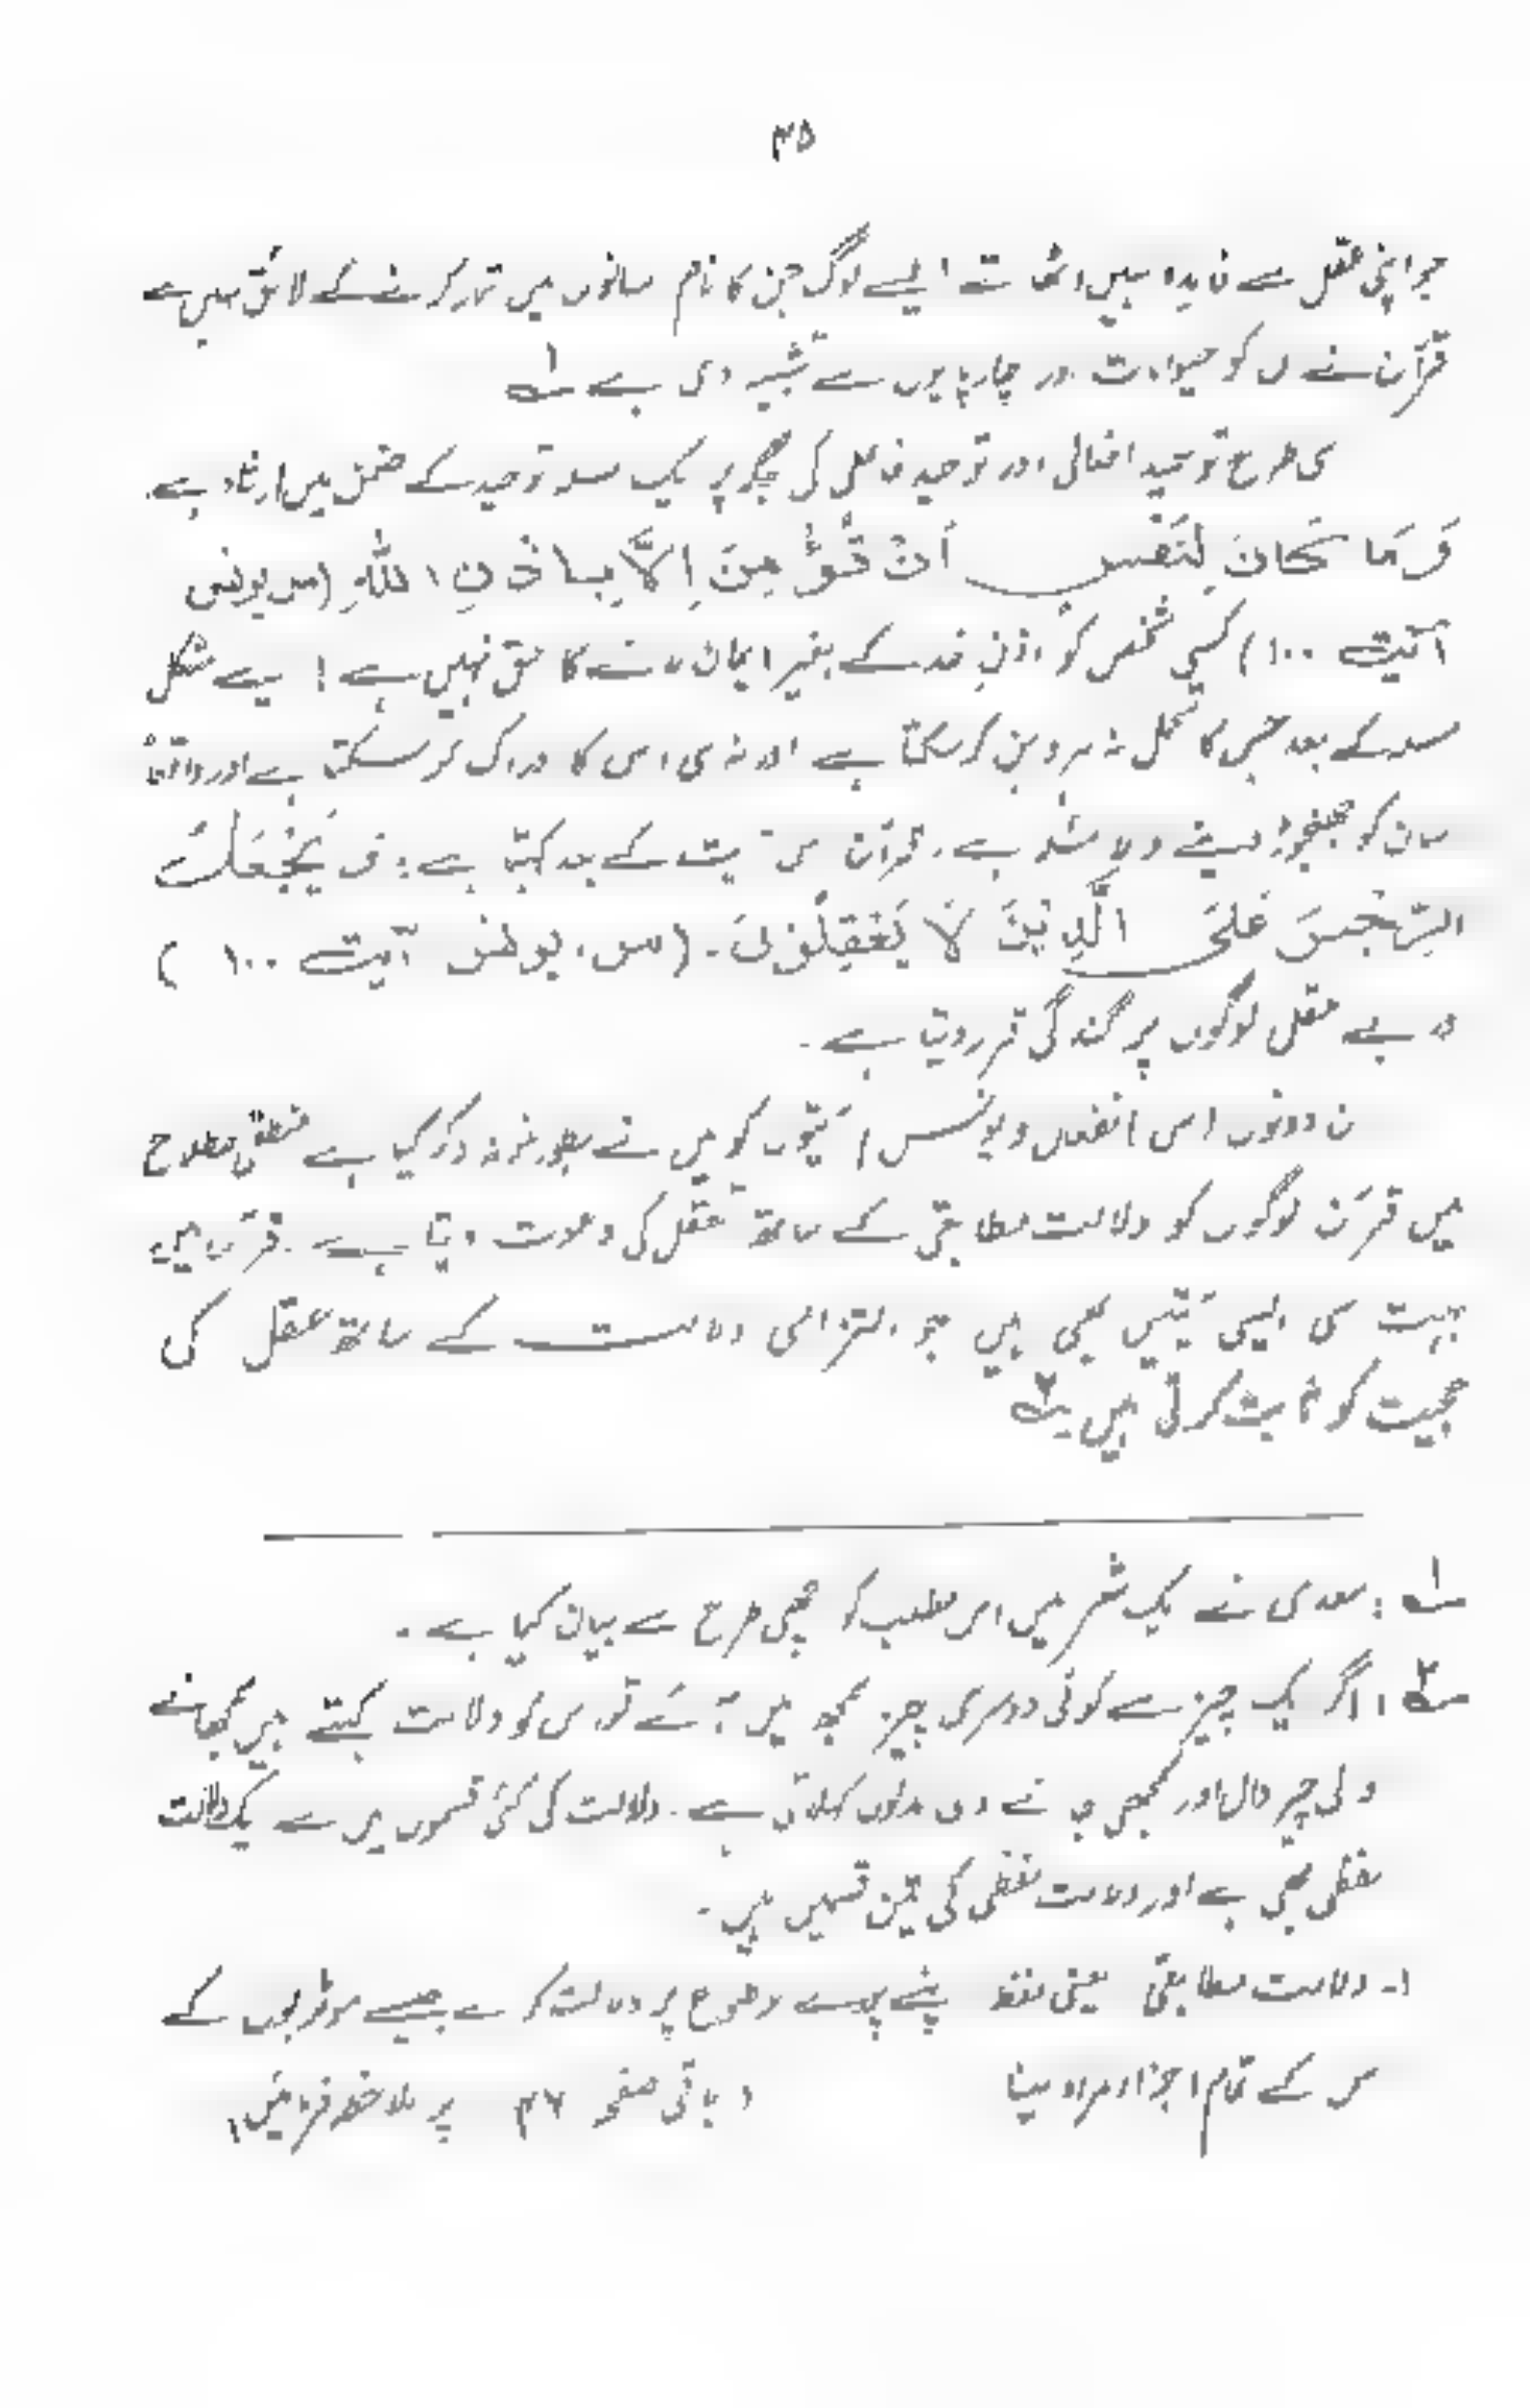 ۳۵
جو اپنی عقل سے فایدہ نہیں اٹھاتے ایسے لوگ جن کا نام انسانوں میں شمار کرنے کے لائق نہیں ہے
قرآن نے ان کو حیوانات اور چارپایوں سے تشبیہ دی ہے ۱؎
اسی طرح توحید افعالی اور توحید فاعلی کی جگہ پر ایک مسئلہ توحید کے ضمن میں ارشاد ہے
وَمَا كَانَ لِنَفْسٍ أَنْ تُؤْمِنَ إِلَّا بِإِذْنِ اللهِ (س یونس
آیت ۱۰۰) کسی شخص کو اذنِ خدا کے بغیر ایمان لانے کا حق نہیں ہے! ایسے مشکل
مسئلہ کے بعد جس کا تحمل نہ ہر ذہن کر سکتا ہے اور نہ ہی اس کا ادراک کر سکتا ہے اور واقعاً
انسان کو جھنجھوڑ دینے والا مسئلہ ہے، قرآن اس آیت کے بعد کہتا ہے: وَيَجْعَلُ
الرِّجْسَ عَلَى الَّذِينَ لَا يَعْقِلُونَ۔ (س، یونس آیت ۱۰۰ )
وہ بے عقل لوگوں پر گندگی قرار دیتا ہے۔
ان دونوں (س انفعال و یونس) آیتوں کو میں نے بطور نمونہ ذکر کیا ہے منطقی اصطلاح
میں قرآن لوگوں کو دلالت مطابقی کے ساتھ تعقل کی دعوت دیتا ہے۔ قرآن میں
بہت سی ایسی آیتیں بھی ہیں جو التزامی دلالت کے ساتھ عقل کی
حجیت کو ثابت کرتی ہیں ۲؎
۱؎ : سعدی نے ایک شعر میں اس مطلب کو اچھی طرح سے بیان کیا ہے۔
۲؎ : اگر ایک چیز سے کوئی دوسری چیز سمجھ میں آئے تو اس کو دلالت کہتے ہیں سمجھانے
والی چیز دال اور سمجھی جانے والی مدلول کہلاتی ہے۔ دلالت کی کئی قسموں میں سے ایک دلالت
لفظی بھی ہے اور دلالت لفظی کی تین قسمیں ہیں۔
۱۔ دلالت مطابقی یعنی لفظ اپنے پورے موضوع پر دلالت کرے جیسے موٹر بول کے
اس کے تمام اجزاء مراد لینا (باقی صفحہ ۳۶ پر ملاحظہ فرمائیں)